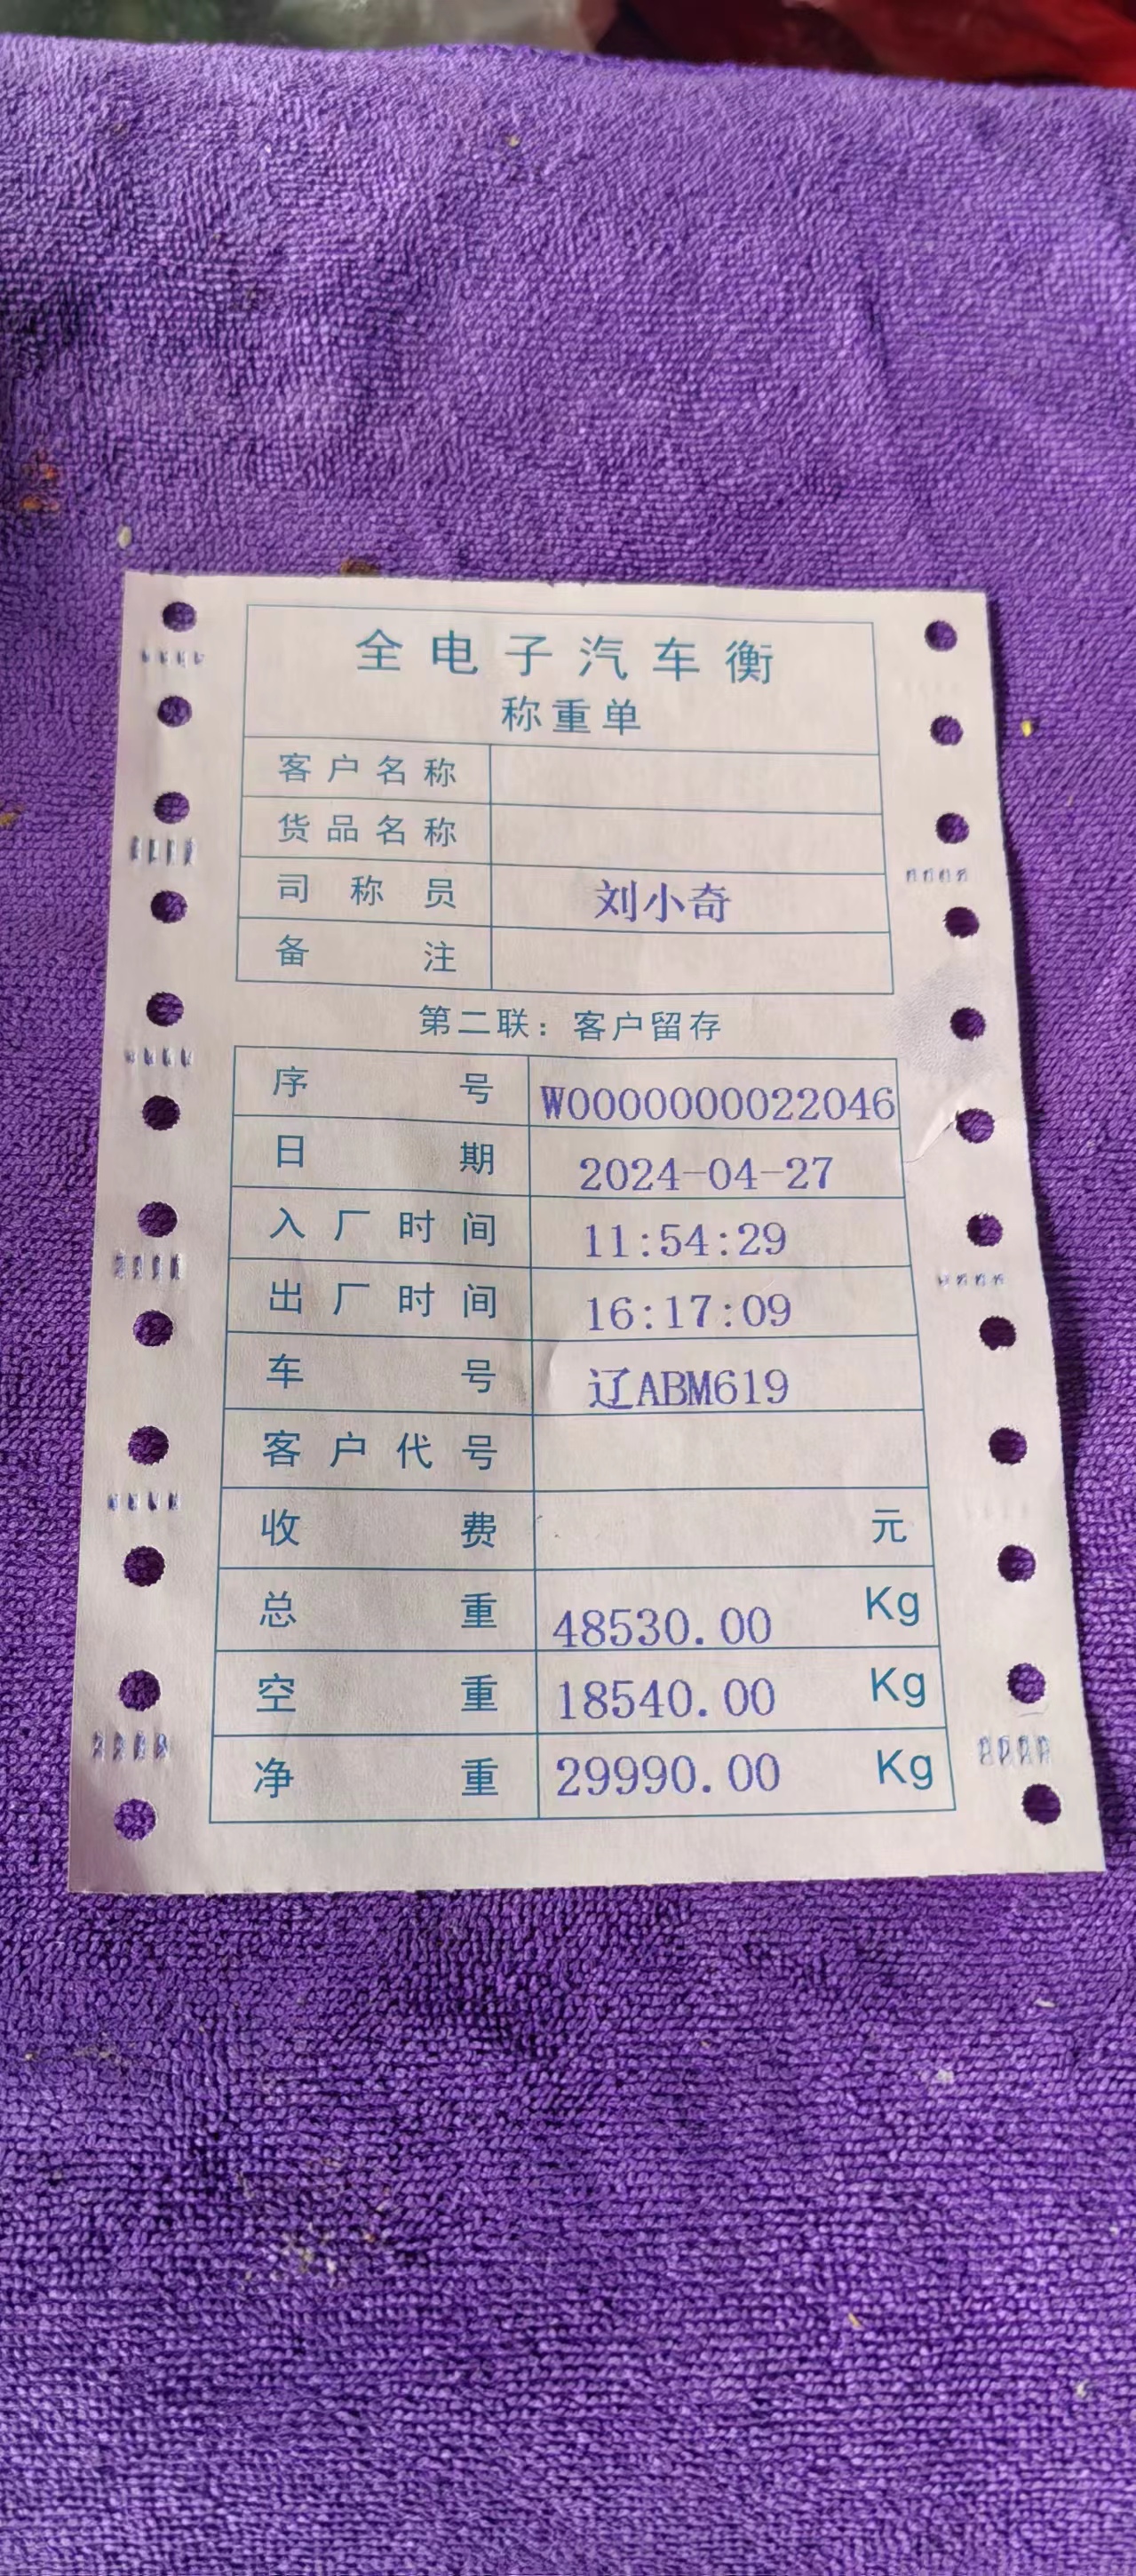 全电子汽车衡
称重单
客户名称
货品名称
司称员 刘小奇
备注
第二联：客户留存
序号 W0000000022046
日期 2024-04-27
入厂时间 11:54:29
出厂时间 16:17:09
车号 辽ABM619
客户代号
收费 元
总重 48530.00 Kg
空重 18540.00 Kg
净重 29990.00 Kg